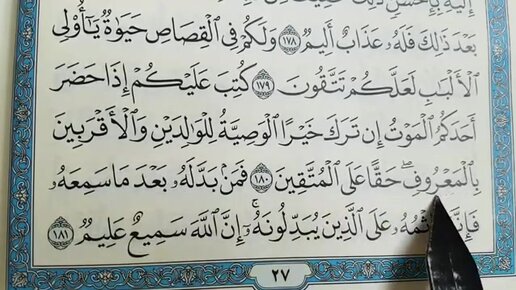 إِلَيْهِ بِإِحْسَٰنٍ ذَٰلِكَ
بَعْدَ ذَٰلِكَ فَلَهُۥ عَذَابٌ أَلِيمٌ ١٧٨ وَلَكُمْ فِي ٱلْقِصَاصِ حَيَوٰةٌ يَٰٓأُو۟لِي
ٱلْأَلْبَٰبِ لَعَلَّكُمْ تَتَّقُونَ ١٧٩ كُتِبَ عَلَيْكُمْ إِذَا حَضَرَ
أَحَدَكُمُ ٱلْمَوْتُ إِن تَرَكَ خَيْرًا ٱلْوَصِيَّةُ لِلْوَٰلِدَيْنِ وَٱلْأَقْرَبِينَ
بِٱلْمَعْرُوفِ ۖ حَقًّا عَلَى ٱلْمُتَّقِينَ ١٨٠ فَمَنۢ بَدَّلَهُۥ بَعْدَ مَا سَمِعَهُۥ
عَلَى ٱلَّذِينَ يُبَدِّلُونَهُۥٓ ۚ إِنَّ ٱللَّهَ سَمِيعٌ عَلِيمٌ ١٨١
٢٧